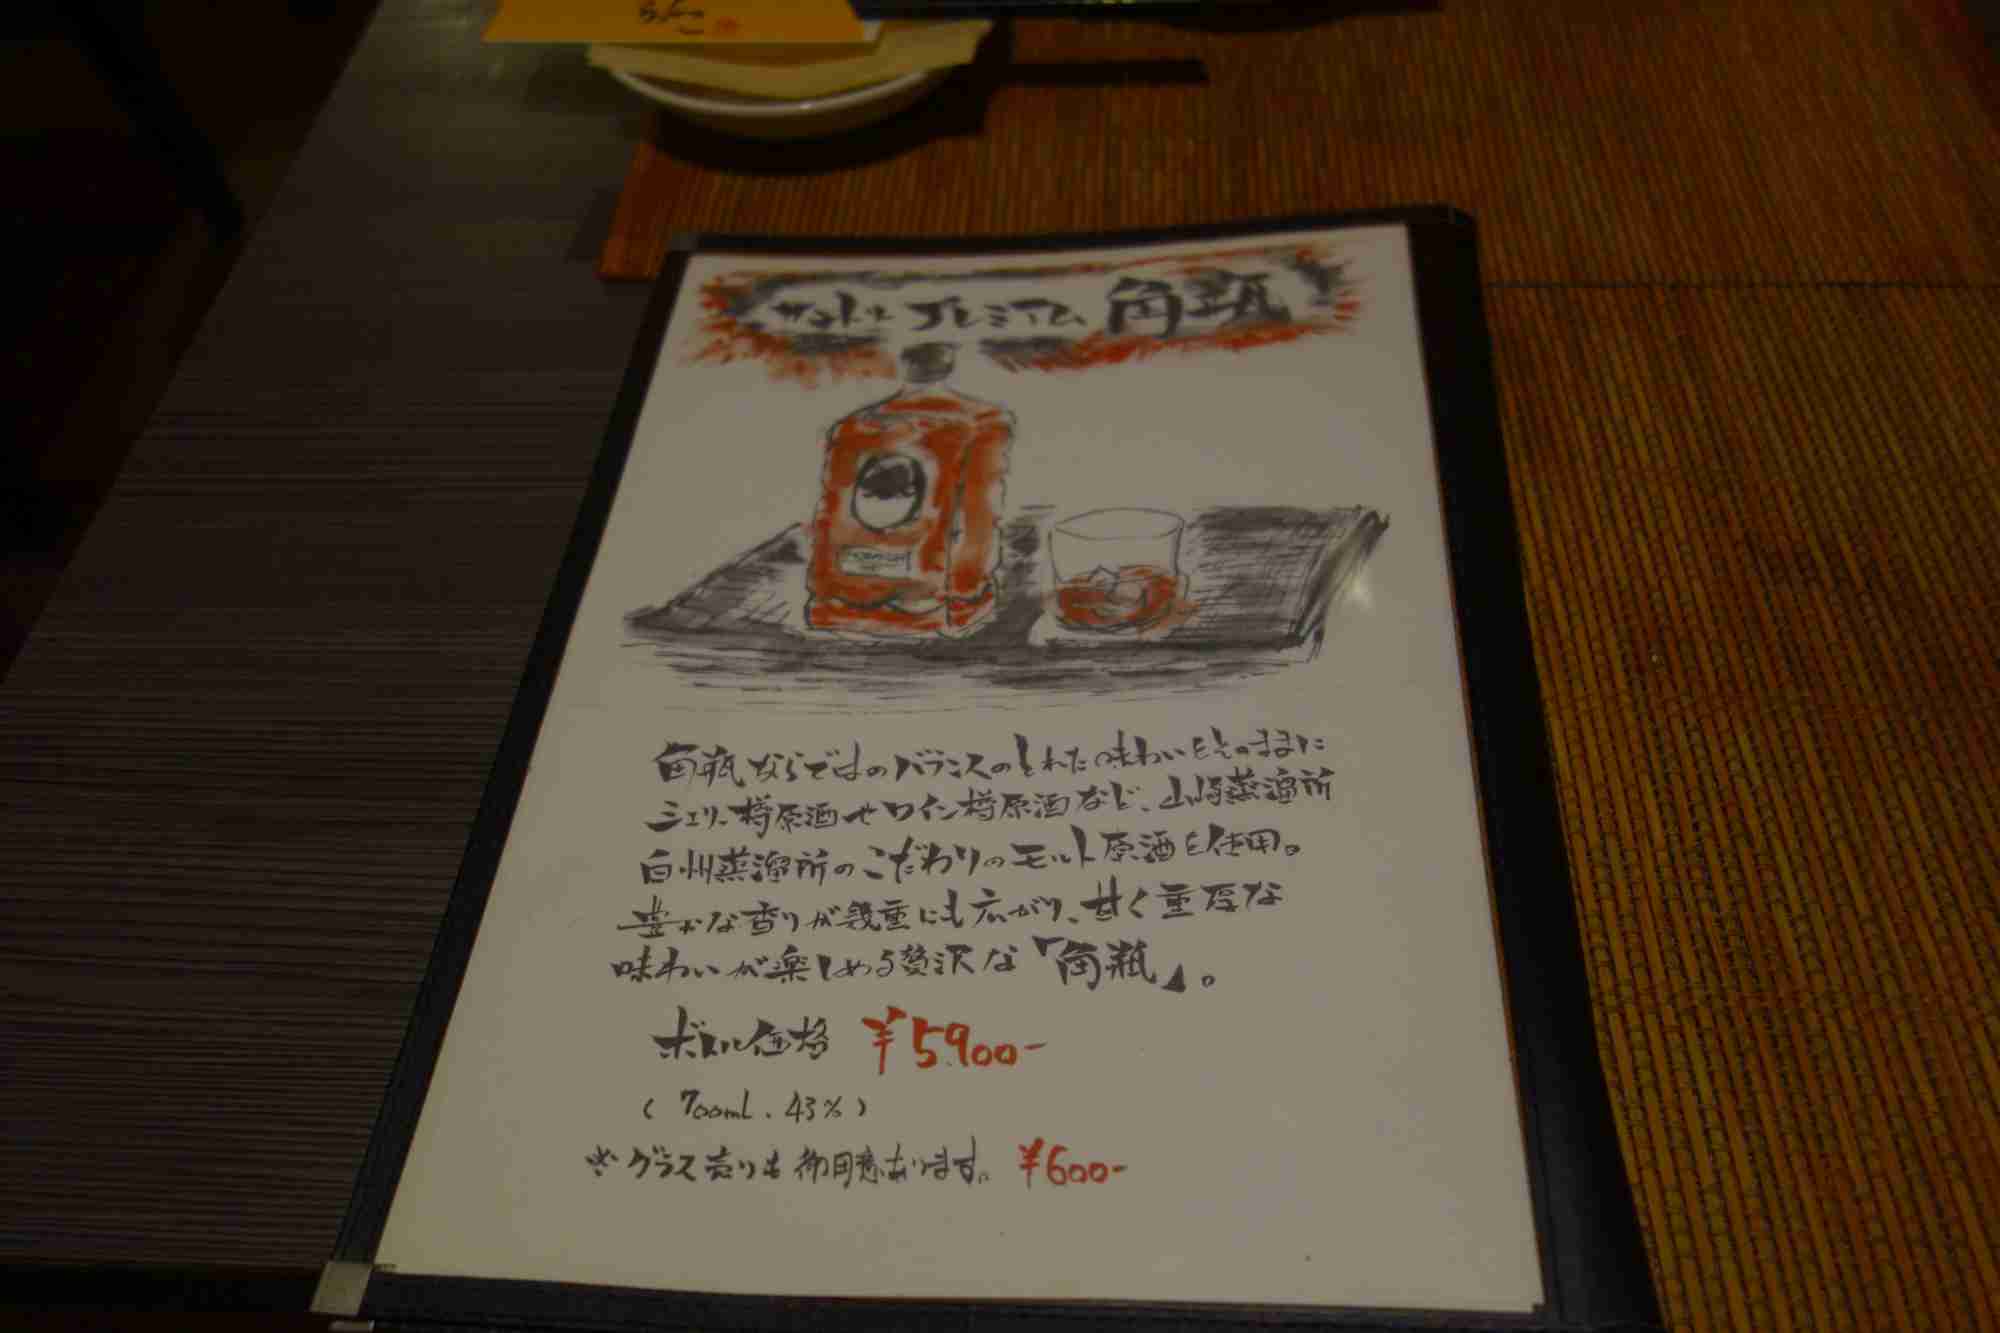 サントリー プレミアム 角瓶
角瓶ならではのバランスのとれた味わいをそのままに
シェリー樽原酒やワイン樽原酒など、山崎蒸溜所
白州蒸溜所のこだわりのモルト原酒を使用。
豊かな香りが幾重にも広がり、甘く重厚な
味わいが楽しめる贅沢な「角瓶」。
ボトル価格 ¥5900-
(700ml、43%)
※グラス売りも御用意あります。 ¥600-